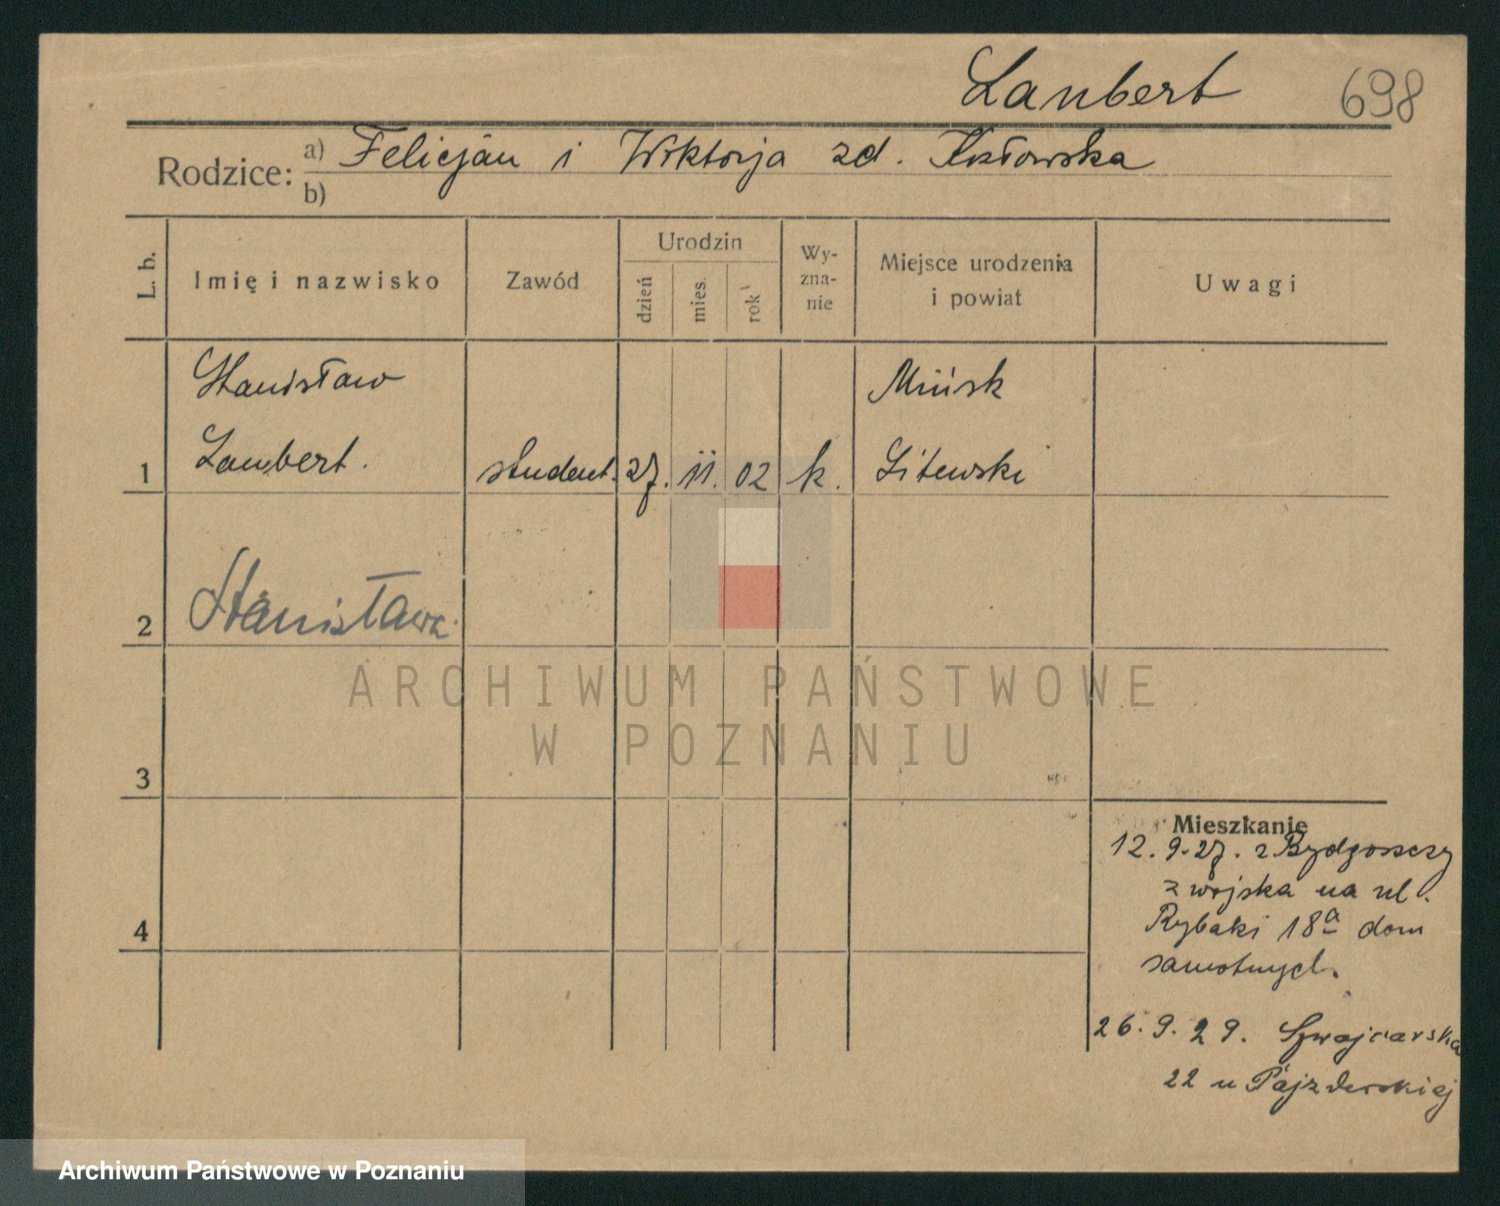 Lambert 698
Rodzice: a) Felicjan i Wiktorja zd. Kozłowska
b)
L. b.
Imię i nazwisko
Zawód
Urodzin
dzień
mies.
rok
Wy-
zna-
nie
Miejsce urodzenia
i powiat
Uwagi
Stanisław
Mińsk
1 Lambert. student. 27. 11. 02 k. Litewski
2 Stanisława
3
4
Mieszkanie
12.9.27. z Bydgoszczy
z wojska na ul.
Rybaki 18a dom
samotnych.
26.9.29. Szwajcarska
22 u Pajzderskiej
ARCHIWUM PAŃSTWOWE
W POZNANIU
Archiwum Państwowe w Poznaniu